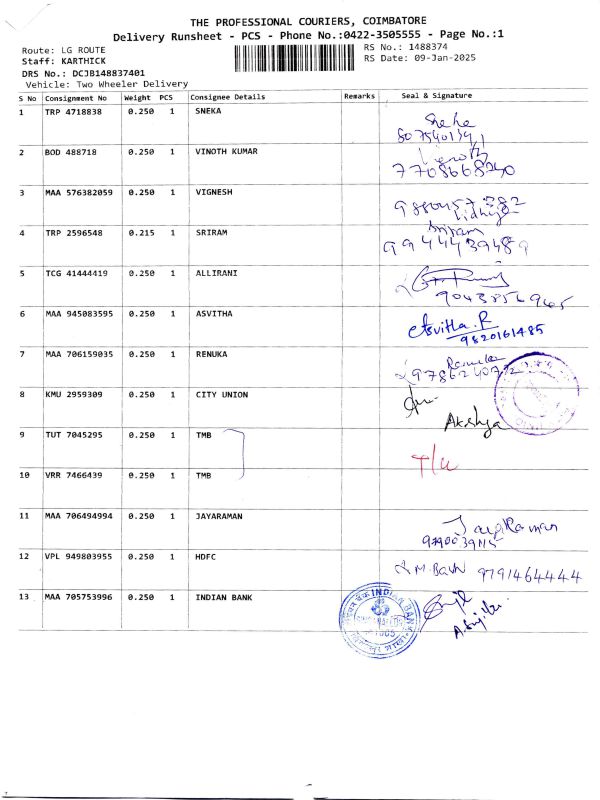 THE PROFESSIONAL COURIERS, COIMBATORE
Delivery Runsheet - PCS - Phone No.:0422-3505555 - Page No.:1
Route: LG ROUTE
RS No.: 1488374
Staff: KARTHICK
RS Date: 09-Jan-2025
DRS No.: DCJB148837401
Vehicle: Two Wheeler Delivery
S No Consignment No Weight PCS Consignee Details Remarks Seal & Signature
1 TRP 4718838 0.250 1 SNEKA
2 BOD 488718 0.250 1 VINOTH KUMAR
7708668240
3 MAA 576382059 0.250 1 VIGNESH
9880457382
4 TRP 2596548 0.215 1 SRIRAM Sriram
9944439489
5 TCG 41444419 0.250 1 ALLIRANI
6 MAA 945083595 0.250 1 ASVITHA Asvitha.R
9820161485
7 MAA 706159035 0.250 1 RENUKA Renuka
8 KMU 2959309 0.250 1 CITY UNION
Akshya
9 TUT 7045295 0.250 1 TMB
T/U
10 VRR 7466439 0.250 1 TMB
11 MAA 706494994 0.250 1 JAYARAMAN JayaRaman
12 VPL 949803955 0.250 1 HDFC
9791464444
13 MAA 705753996 0.250 1 INDIAN BANK
INDIAN BANK